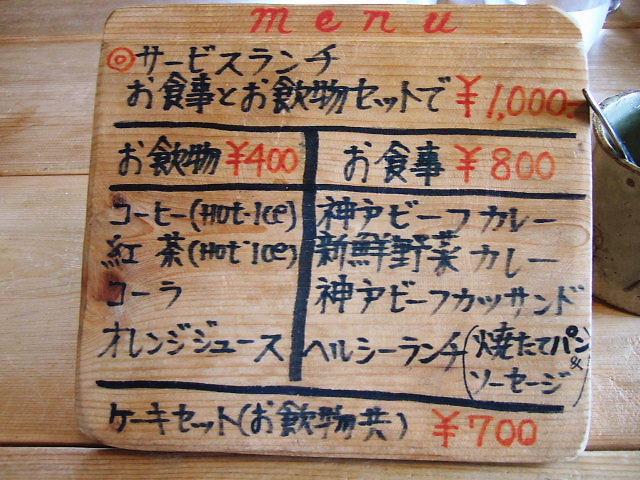 menu
◎サービスランチ
お食事とお飲物セットで ¥1,000-
お飲物 ¥400
コーヒー(Hot-Ice)
紅茶(Hot-Ice)
コーラ
オレンジジュース
お食事 ¥800
神戸ビーフカレー
新鮮野菜カレー
神戸ビーフカッサンド
ヘルシーランチ(焼たてパン
&
ソーセージ)
ケーキセット(お飲物共) ¥700